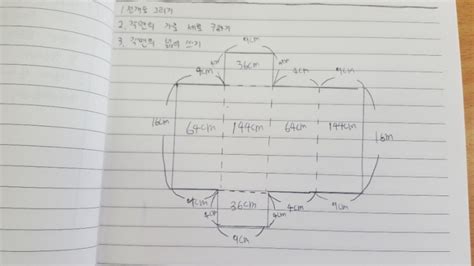 1. 전개도 그리기
2. 각면의 가로 세로 구하기
3. 각면의 넓이 쓰기
9cm
36cm
4cm 9cm
16cm 64cm 144cm 64cm 144cm 16cm
36cm
4cm 9cm
9cm